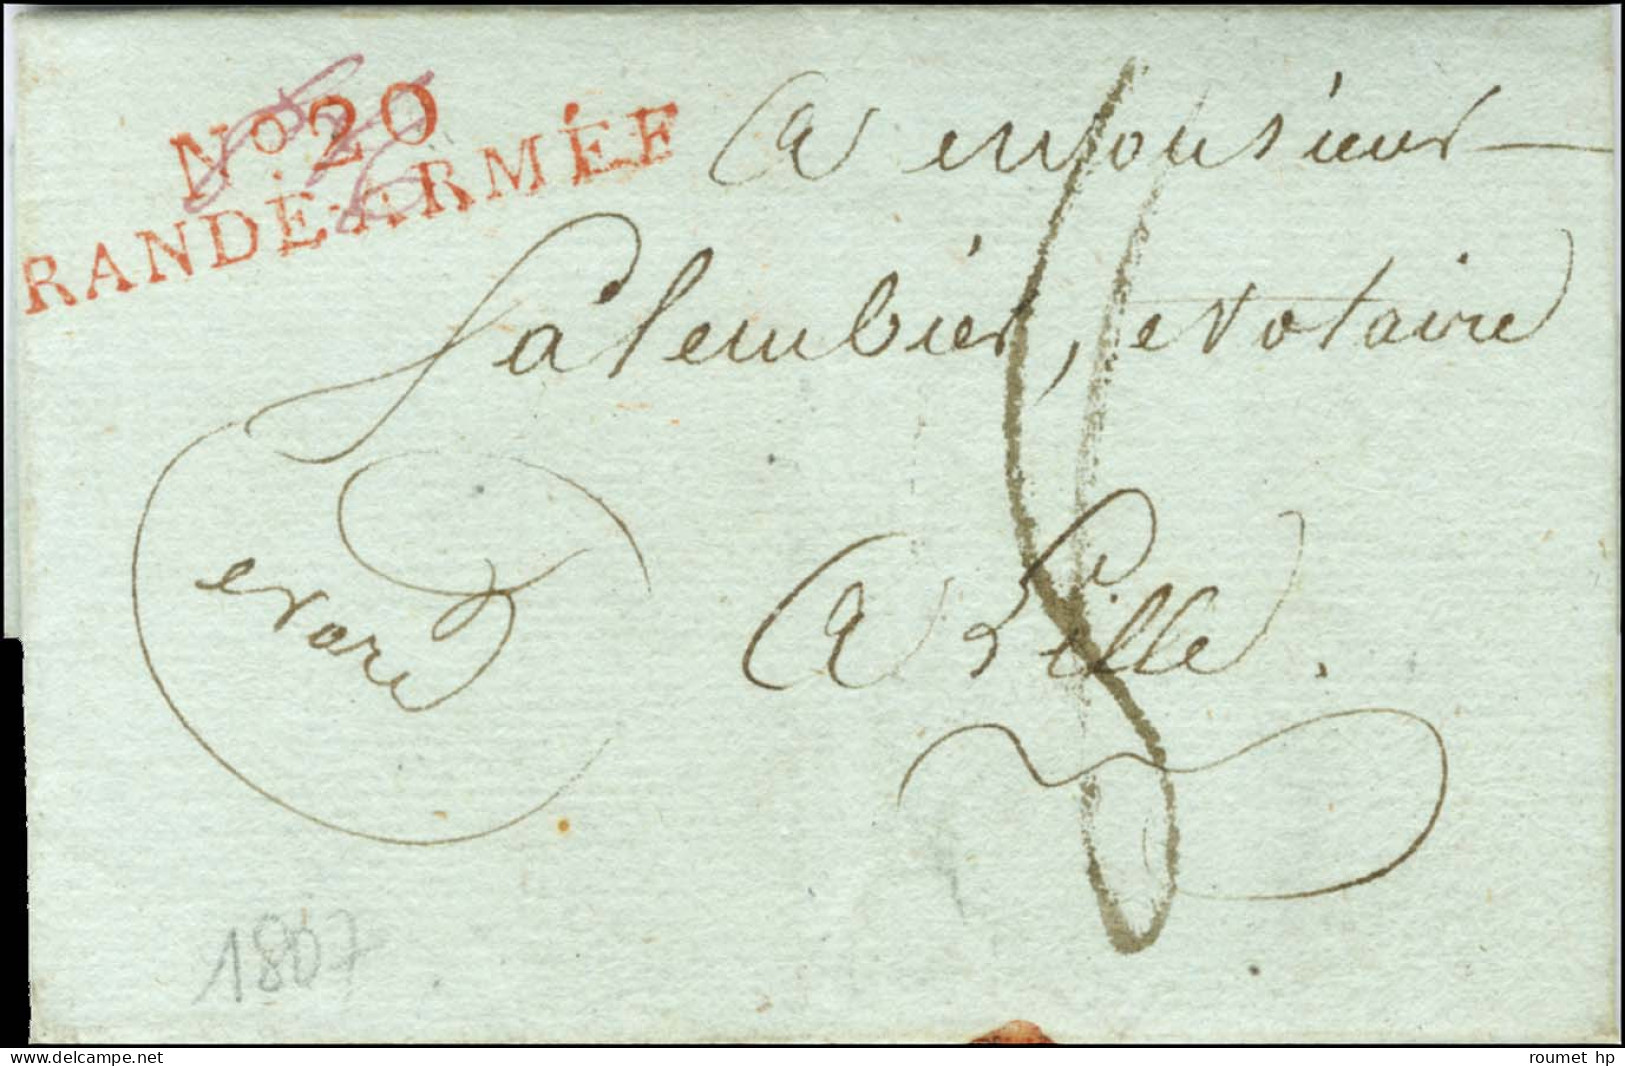 No. 20
RANDE-ARMÉE
A Monsieur
Salembier, Notaire
A Lille.
Nord
8
1807
www.delcampe.net
roumet hp